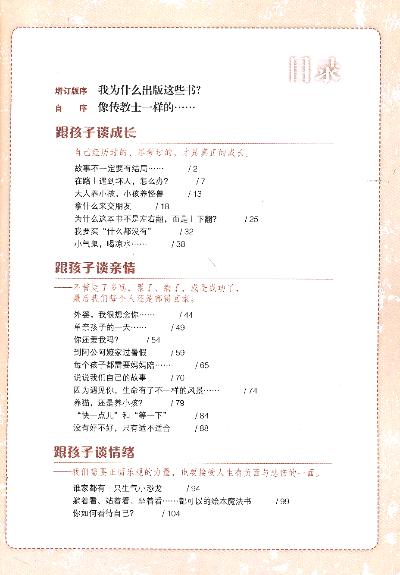 目录
增订版序 我为什么出版这些书？
自 序 像传教士一样的……
跟孩子谈成长
自己经历过的，思考过的，才是真正的成长。
故事不一定要有结局…… / 2
在路上遇到坏人，怎么办？ / 7
大人养小孩，小孩养怪兽 / 13
拿什么来交朋友 / 18
为什么这本书不是左右翻，而是上下翻？ / 25
我要买“什么都没有” / 32
小气鬼，喝凉水…… / 38
跟孩子谈亲情
最后我们每个人还是都得回家。
外婆，我很想念你…… / 44
单亲孩子的一天…… / 49
你还爱我吗？ / 54
到阿公阿嬷家过暑假 / 59
每个孩子都需要妈妈陪…… / 65
说说我们自己的故事 / 70
因为遇见你，生命有了不一样的风景…… / 74
养猫，还是养小孩？ / 79
“快一点儿”和“等一下” / 84
没有好不好，只有适不适合 / 88
跟孩子谈情绪
——我们需要正面乐观的力量，也要接受人生有负面与悲伤的一面。
谁家都有一只生气小恐龙 / 94
躺着看、站着看、坐着看……都可以的绘本魔法书 / 99
你如何看待自己？ / 104